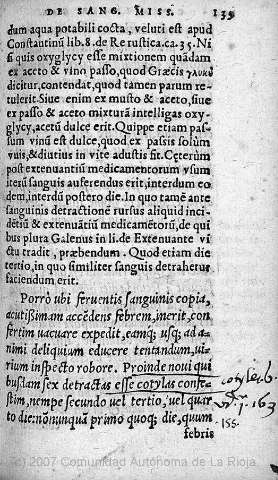 DE SANG. MISS. 139
dum aqua potabili cocta, veluti est apud
Constantinū lib. 8. de Re rustica.ca.35. Ni
si quis oxyglycy esse mixtionem quādam
ex aceto & vino passo, quod Græcis γλυκὺ
dicitur, contendat, quod tamen parum re-
tulerit. Siue enim ex musto & aceto, siue
ex passo & aceto mixturā intelligas oxy-
glycy, acetū dulce erit. Quippe etiam pas-
sum vinū est dulce, quod ex passis solum
vuis, & diutius in vite adustis fit. Cęterùm
post extenuantiū medicamentorum vsum
iterū sanguis auferendus erit, interdum eo
dem, interdū postero die. In quo tamē ante
sanguinis detractionē rursus aliquid inci-
detiū & extenuātiū medicamētorū, de qui
bus plura Galenus in li. de Extenuante vi
ctu tradit, præbendum. Quod etiam die
tertio, in quo similiter sanguis detrahetur
faciendum erit.
Porrò vbi feruentis sanguinis copia,
acutissimam accēdens febrem, inerit, con
fertim vacuare expedit, eamq; vsq; ad a-
nimi deliquium educere tentandum, vi-
rium inspecto robore. Proinde noui qui
busdam sex detractas esse cotylas confe-
stim, nempe secundo vel tertio, vel quar
to die: nōnunquā primo quoq; die, quum
febris
cotyle. 6.
1. 163
155.
(c) 2007 Comunidad Autónoma de La Rioja